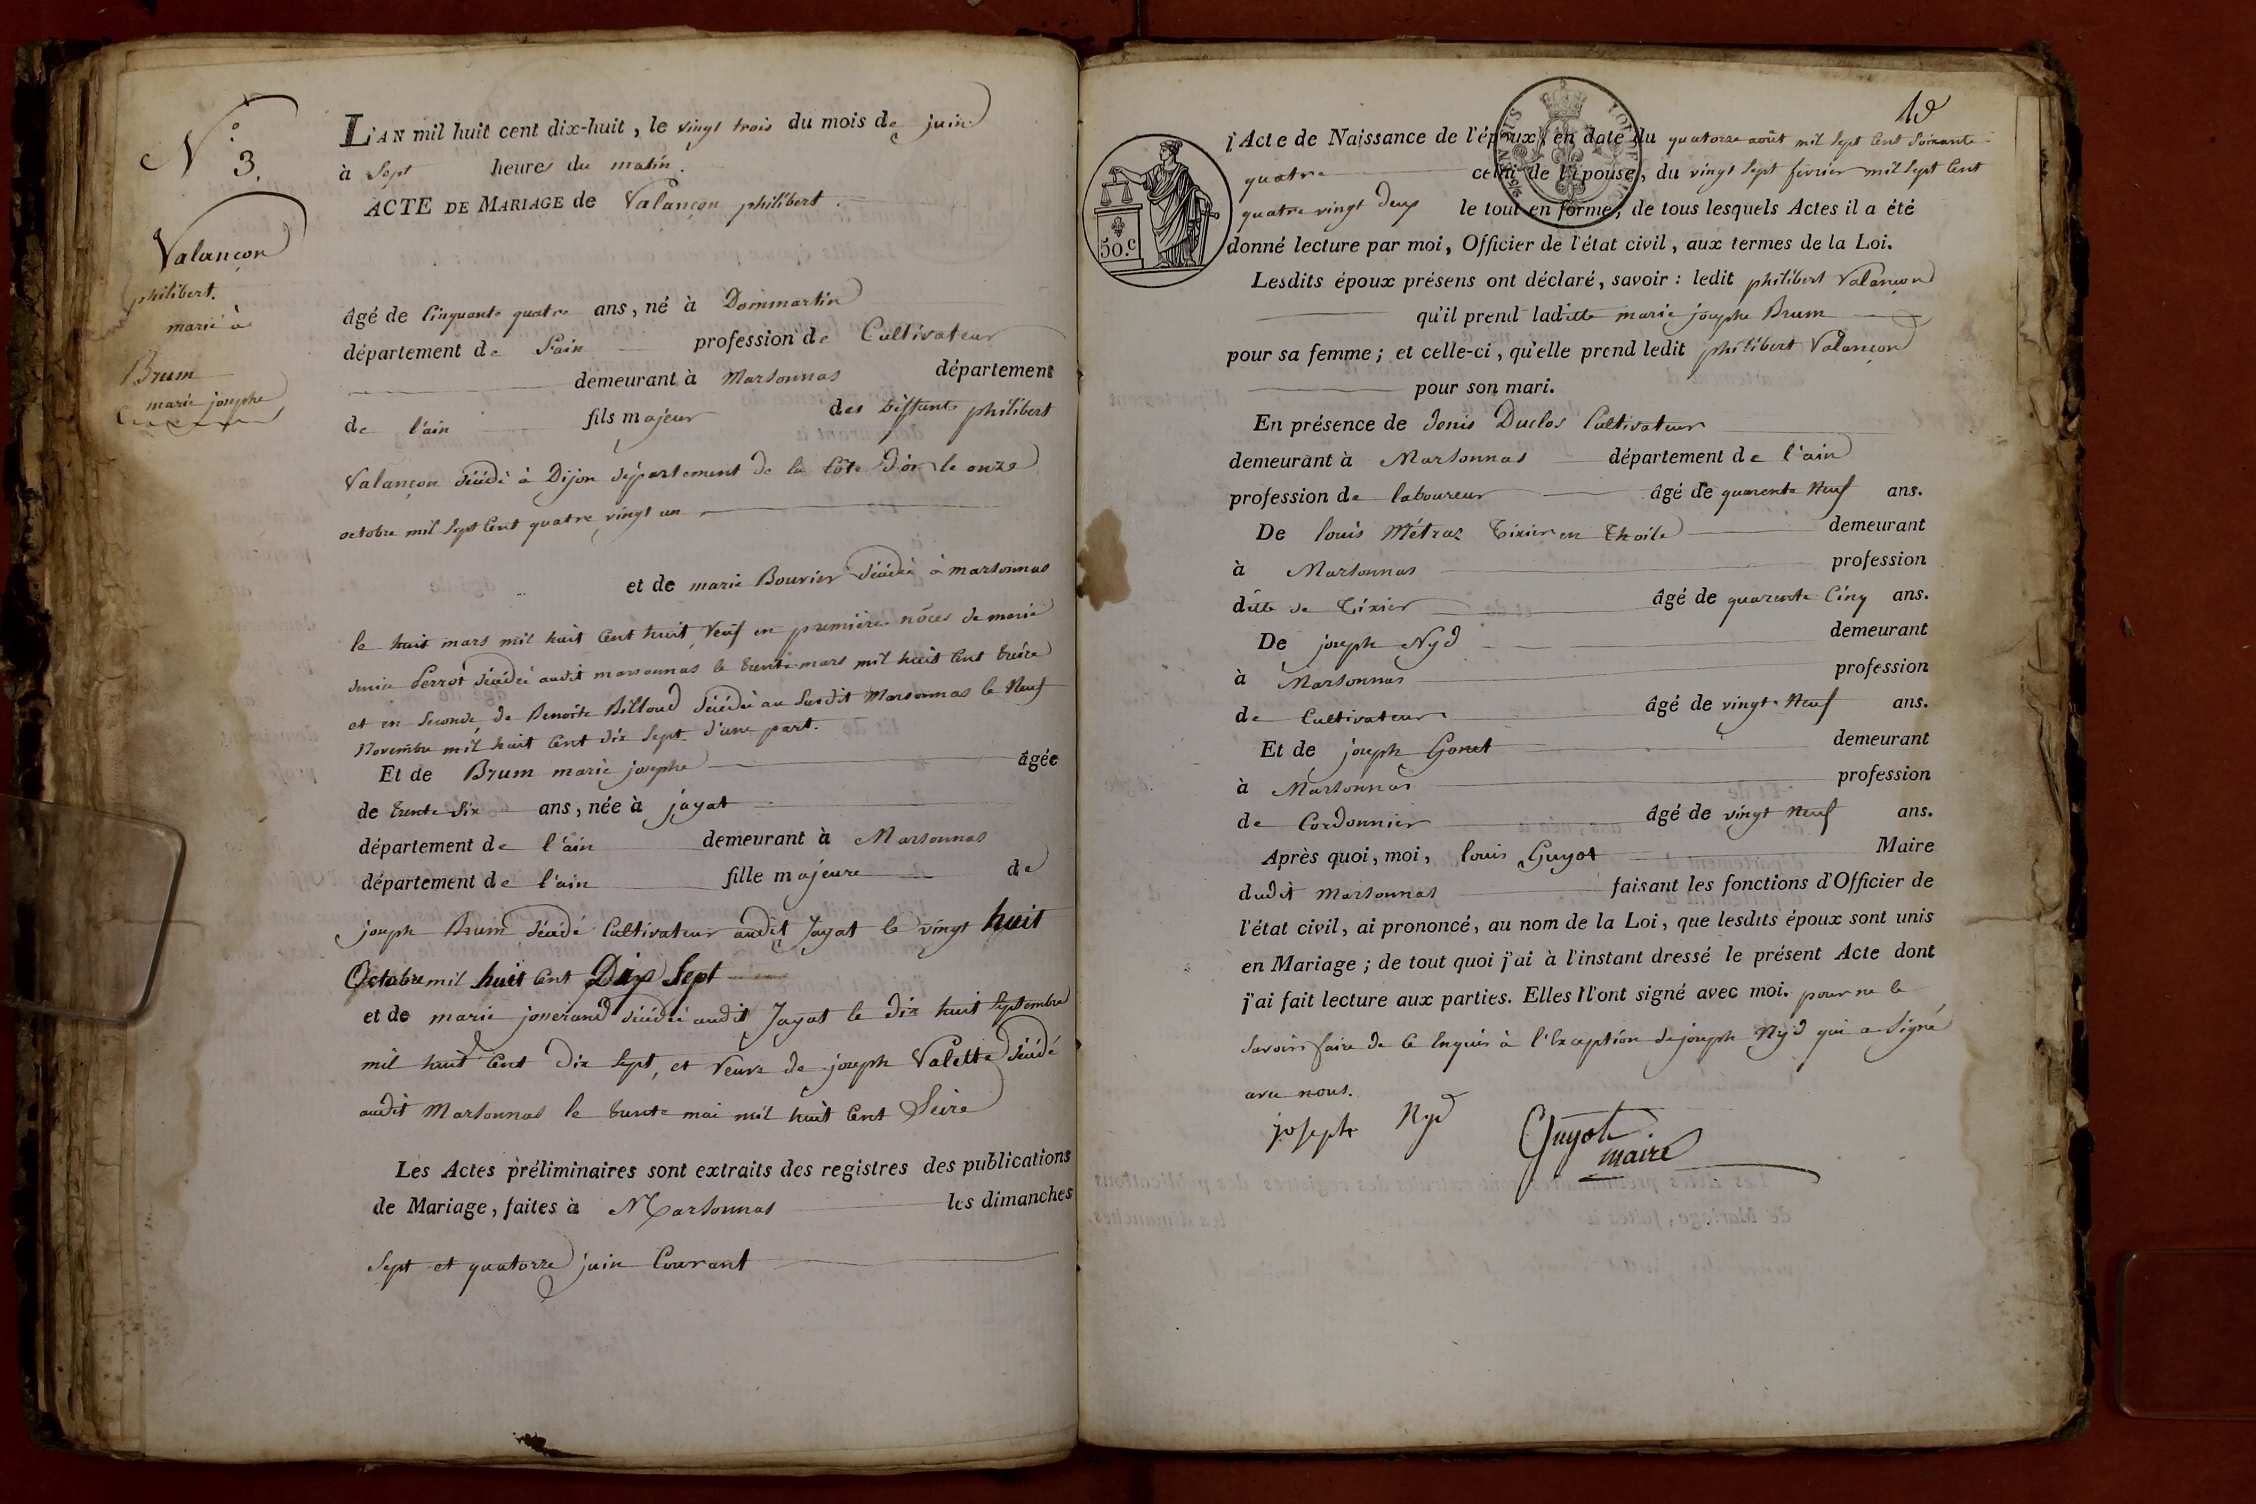 N° 3.
Valançon
philibert.
marié à
Brum
marie josephe
L'AN mil huit cent dix-huit, le vingt trois du mois de juin
à sept heures du matin.
ACTE DE MARIAGE de Valançon philibert
âgé de Cinquante quatre ans, né à Dommartin
département de l'ain profession de Cultivateur
demeurant à Marsonnas département
de l'ain fils majeur des deffunts philibert
Valançon décédé à Dijon département de la Côte d'or le onze
octobre mil sept Cent quatre vingt un
et de marie Bouvier décédée à marsonnas
le huit mars mil huit Cent huit, Veuf en premières nôces de marie
Perrot décédée audit marsonnas le trente mars mil huit Cent treize
et en seconde de Benoîte Billoud décédée au susdit Marsonnas le Neuf
Novembre mil huit Cent dix sept d'une part.
Et de Brum marie josephe âgée
de trente six ans, née à jayat
département de l'ain demeurant à Marsonnas
département de l'ain fille majeure de
joseph Brum décédé Cultivateur audit Jayat le vingt huit
Octobre mil huit Cent Dix Sept
et de marie jouerand décédée audit Jayat le dix huit septembre
mil huit Cent dix sept, et Veuve de joseph Valette décédé
audit Marsonnas le trente mai mil huit Cent Seize
Les Actes préliminaires sont extraits des registres des publications
de Mariage, faites à Marsonnas les dimanches
sept et quatorze juin Courant
50.c
l'Acte de Naissance de l'époux, en date du quatorze août mil sept Cent soixante
quatre celui de l'épouse, du vingt sept février mil sept Cent
quatre vingt deux le tout en forme; de tous lesquels Actes il a été
donné lecture par moi, Officier de l'état civil, aux termes de la Loi.
Lesdits époux présens ont déclaré, savoir: ledit philibert Valançon
qu'il prend ladite marie josephe Brum
pour sa femme; et celle-ci, qu'elle prend ledit philibert Valançon
pour son mari.
En présence de denis Duclos Cultivateur
demeurant à Marsonnas département de l'ain
profession de laboureur âgé de quarente Neuf ans.
De louis Métraz Tixier en Thoile demeurant
à Marsonnas profession
dûte de Tixier âgé de quarente Cinq ans.
De joseph Nyd demeurant
à Marsonnas profession
de Cultivateur âgé de vingt Neuf ans.
Et de joseph Gonet demeurant
à Marsonnas profession
de Cordonnier âgé de vingt Neuf ans.
Après quoi, moi, louis Guyot Maire
dudit Marsonnas faisant les fonctions d'Officier de
l'état civil, ai prononcé, au nom de la Loi, que lesdits époux sont unis
en Mariage; de tout quoi j'ai à l'instant dressé le présent Acte dont
j'ai fait lecture aux parties. Elles n'ont signé avec moi. pour ne le
savoir faire de Ce Enquis à l'Exception de joseph Nyd qui a signé
avec nous.
joseph Nyd
Guyot
maire